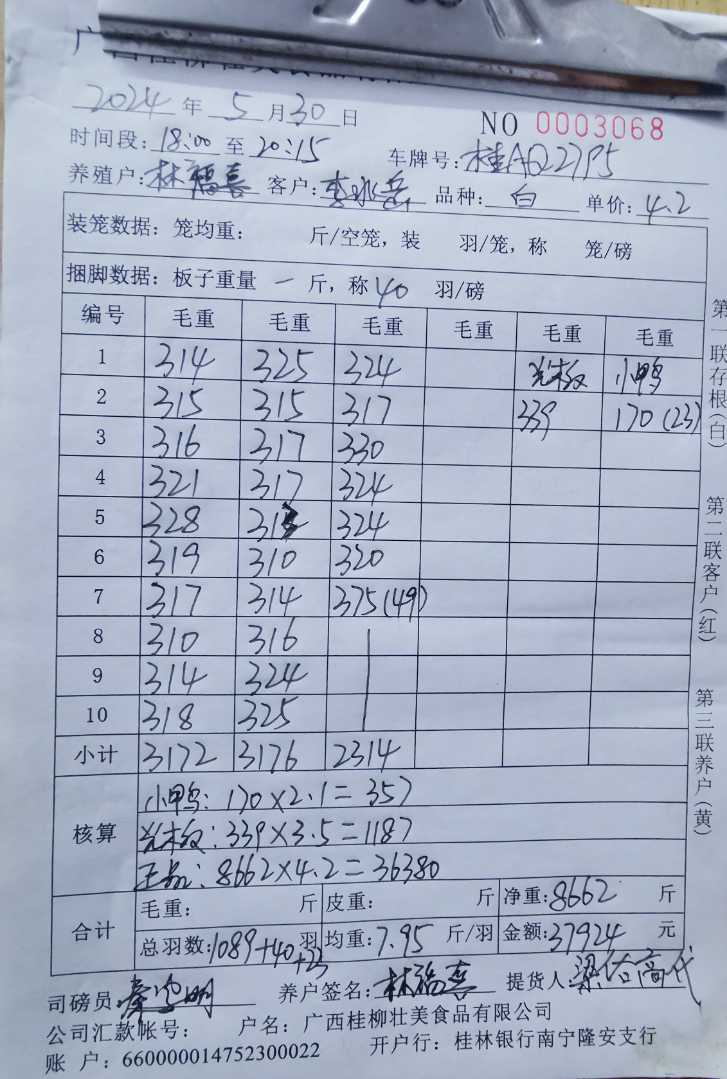 2024年5月30日 NO 0003068
时间段:18:00至20:15 车牌号:桂AQ27P5
养殖户:林福喜 客户: 品种:白 单价:4.2
装笼数据:笼均重: 斤/空笼,装 羽/笼,称 笼/磅
捆脚数据:板子重量 一 斤,称40 羽/磅
编号 毛重 毛重 毛重 毛重 毛重 毛重
1 314 325 324 小鸭
2 315 315 317 339 170(23)
3 316 317 330
4 321 317 324
5 328 313 324
6 319 310 320
7 317 314 375(49)
8 310 316
9 314 324
10 318 325
小计 3172 3176 2314
核算
小鸭:170×2.1=357
339×3.5=1187
8662×4.2=36380
合计
毛重: 斤 皮重: 斤 净重:8662 斤
总羽数:1089+40+23羽 均重:7.95 斤/羽 金额:37924 元
司磅员: 养户签名:林福喜 提货人:
公司汇款帐号: 户名:广西桂柳壮美食品有限公司
账 户:660000014752300022 开户行:桂林银行南宁隆安支行
第一联存根(白)
第二联客户(红)
第三联养户(黄)